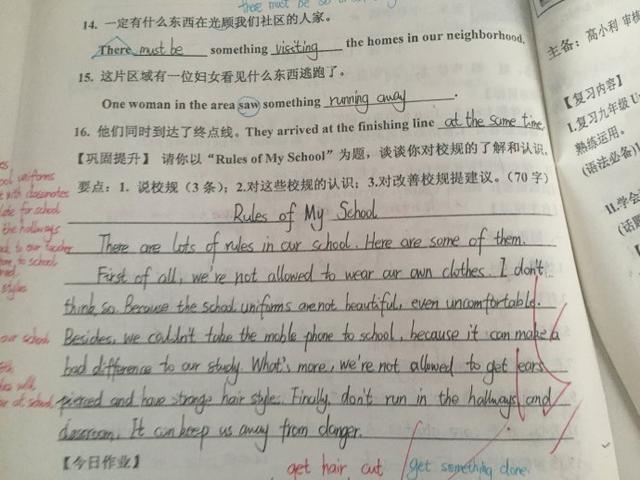 there must be
14. 一定有什么东西在光顾我们社区的人家。
There must be something visiting the homes in our neighborhood.
15. 这片区域有一位妇女看见什么东西逃跑了。
One woman in the area saw something running away.
16. 他们同时到达了终点线。They arrived at the finishing line at the same time.
【巩固提升】 请你以“Rules of My School”为题，谈谈你对校规的了解和认识。
要点：1. 说校规（3 条）；2.对这些校规的认识；3.对改善校规提建议。（70 字）
Rules of My School
There are lots of rules in our school. Here are some of them.
First of all, we're not allowed to wear our own clothes. I don't
think so. Because the school uniforms are not beautiful, even uncomfortable.
Besides, we couldn't take the moble phone to school, because it can make a
bad difference to our study. What's more, we're not allowed to get ears
pierced and have strange hair styles. Finally, don't run in the hallways and
classroom. It can keep us away from danger.
【今日作业】
get hair cut
get something done.
ool uniforms
with classmates
late for school
the hallways
to our teacher
to school
styles
our school
at school
主备：高小利 审核
【复习内容】
1.复习九年级 U
熟练运用。
(语法必备)1
II.学会
(话